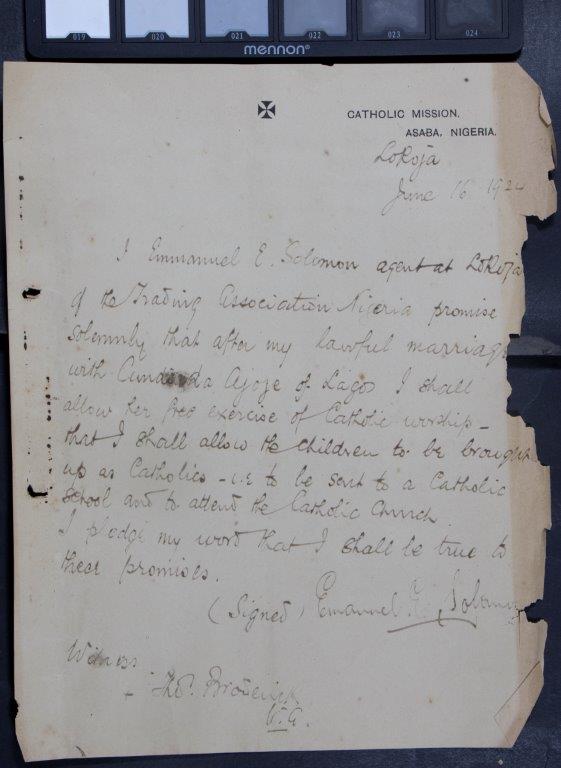 019 020 021 022 023 024
mennon
CATHOLIC MISSION,
ASABA, NIGERIA.
Lokoja
June 16 1924
I Emmanuel E. Solomon agent at Lokoja
of the Trading Association Nigeria promise
solemnly that after my lawful marriage
with Ajoje of Lagos I shall
allow her free exercise of Catholic worship –
that I shall allow the children to be brought
up as Catholics – i.e to be sent to a Catholic
school and to attend the Catholic Church.
I pledge my word that I shall be true to
these promises.
(Signed) Emanuel E. Solomon
Witness
– Thos. Broderick
V.G.